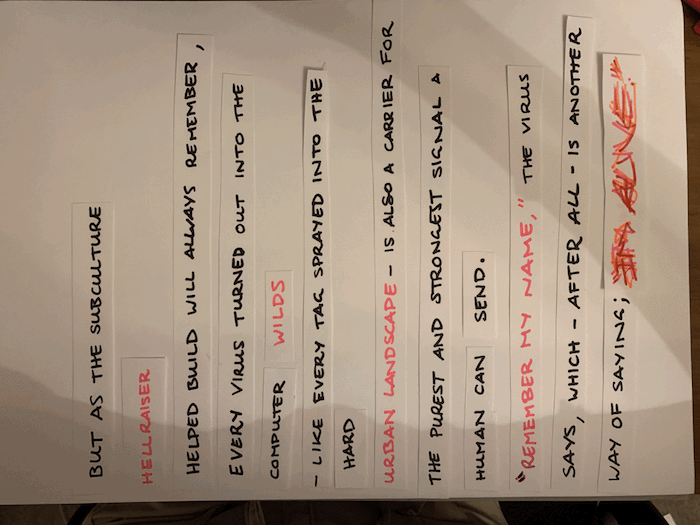 BUT AS THE SUBCULTURE
HELLRAISER
HELPED BUILD WILL ALWAYS REMEMBER,
EVERY VIRUS TURNED OUT INTO THE
COMPUTER WILDS
- LIKE EVERY TAG SPRAYED INTO THE
HARD
URBAN LANDSCAPE - IS ALSO A CARRIER FOR
THE PUREST AND STRONGEST SIGNAL A
HUMAN CAN SEND.
"REMEMBER MY NAME," THE VIRUS
SAYS, WHICH - AFTER ALL - IS ANOTHER
WAY OF SAYING; "I'M ALIVE"